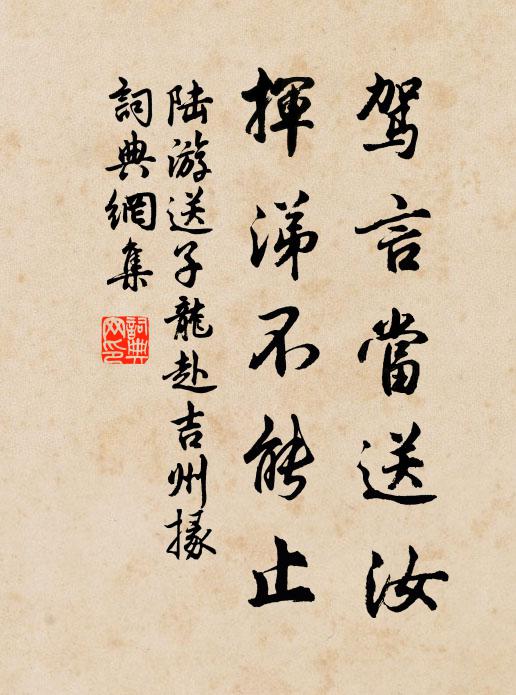 駕言當送汝
揮涕不能止
陸游送子龍赴吉州掾
詞典網集
詞典網印